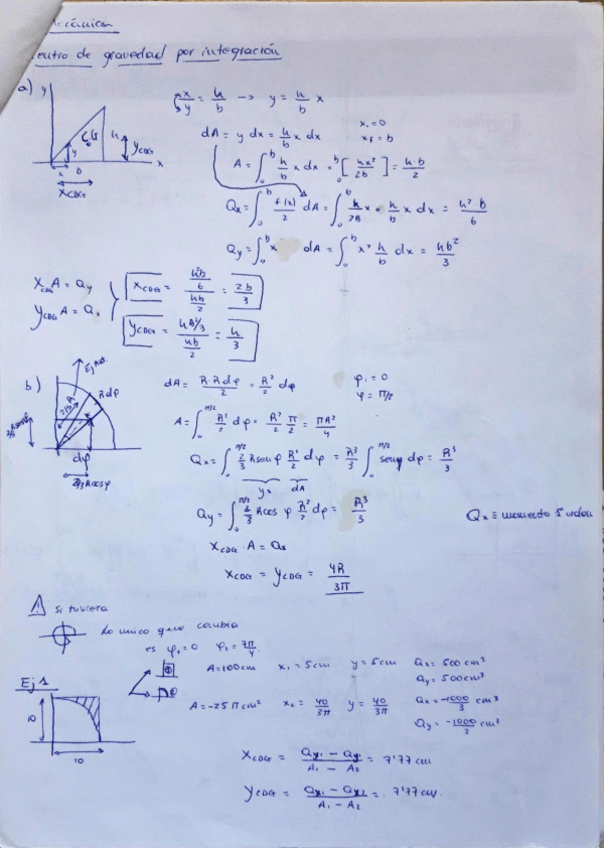 Mecánica
Centro de gravedad por integración
a) y
x/y = h/b → y = h/b x
CG h y y_CDG
x b x
X_CDG
dA = y dx = h/b x dx x₁ = 0
x_f = b
A = ∫₀ᵇ h/b x dx = [hx²/2b]₀ᵇ = hb/2
Qx = ∫₀ᵇ f(x)/2 dA = ∫₀ᵇ h/2b x · h/b x dx = h²b/6
Qy = ∫₀ᵇ x dA = ∫₀ᵇ x² h/b dx = hb²/3
X_CDG A = Qy
Y_CDG A = Qx
X_CDG = (h²b/6)/(hb/2) = 2b/3
Y_CDG = (hb²/3)/(hb/2) = h/3
b)
R dφ
2/3 R
dφ
2/3 R senφ
2/3 R cosφ
dA = R·R dφ/2 = R²/2 dφ φ₁ = 0
φ = π/2
A = ∫₀^(π/2) R²/2 dφ = R²/2 π/2 = πR²/4
Qx = ∫₀^(π/2) 2/3 R sen φ R²/2 dφ = R³/3 ∫₀^(π/2) senφ dφ = R³/3
yx dA
Qy = ∫₀^(π/2) 2/3 R cos φ R²/2 dφ = R³/3
Qx ≡ momento 1º orden
X_CDG · A = Qx
X_CDG = Y_CDG = 4R/3π
⚠ si tuviera
Lo unico que cambia
es φ₁ = 0 φ₂ = 7π/4
A = 100 cm x₁ = 5 cm y = 5 cm Qx = 500 cm³
Qy = 500 cm³
A = -25 π cm² x₂ = 40/3π y = 40/3π Qx = -1000/3 cm³
Qy = -1000/3 cm³
Ej 1
10
10
X_CDG = (Qy₁ - Qy₂)/(A₁ - A₂) = 7'77 cm
Y_CDG = (Qx₁ - Qx₂)/(A₁ - A₂) = 7'77 cm.